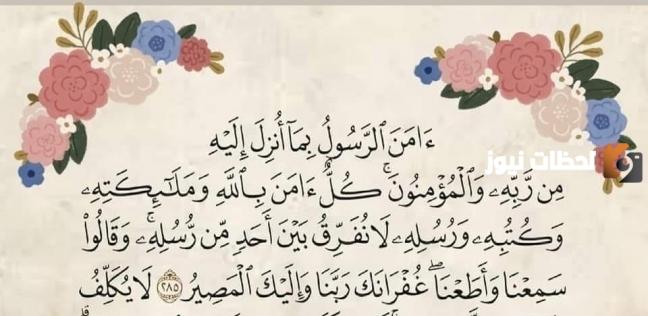 ءَامَنَ ٱلرَّسُولُ بِمَآ أُنزِلَ إِلَيْهِ
مِن رَّبِّهِۦ وَٱلْمُؤْمِنُونَ ۚ كُلٌّ ءَامَنَ بِٱللَّهِ وَمَلَـٰٓئِكَتِهِۦ
وَكُتُبِهِۦ وَرُسُلِهِۦ لَا نُفَرِّقُ بَيْنَ أَحَدٍ مِّن رُّسُلِهِۦ ۚ وَقَالُوا۟
سَمِعْنَا وَأَطَعْنَا ۖ غُفْرَانَكَ رَبَّنَا وَإِلَيْكَ ٱلْمَصِيرُ ٢٨٥ لَا يُكَلِّفُ
لحظات نيوز